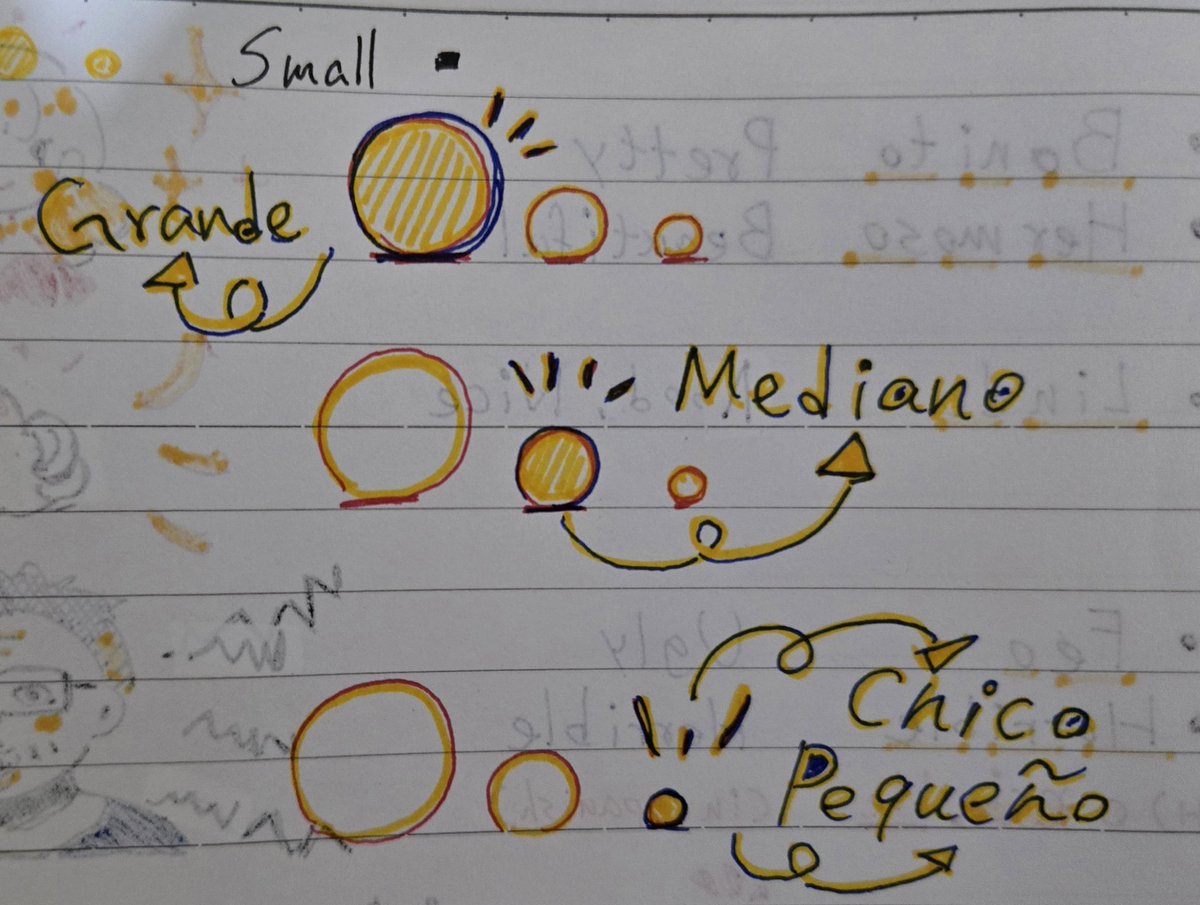 Small
Grande
Mediano
Chico
Pequeño